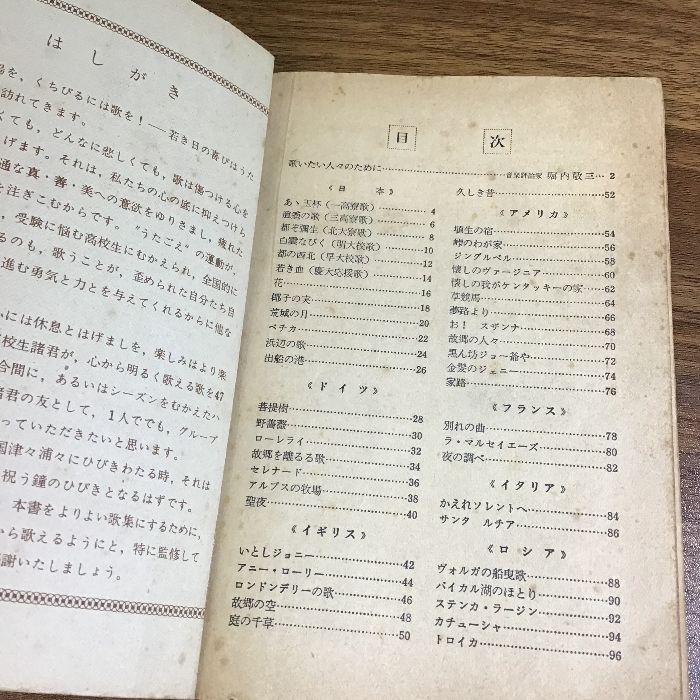 はしがき
を，くちびるには歌を！――若き日の喜びはうた
訪れてきます。
ても，どんなに悲しくても，歌は傷つける心を
げます。それは，私たちの心の底に抑えつけら
通な真・善・美への意欲をゆりさまし，疲れた
を注ぎこむからです。“うたごえ”の運動が，
，受験に悩む高校生にむかえられ，全国的に
るのも，歌うことが，歪められた自分たち自
進む勇気と力とを与えてくれるからに他な
には休息とはげましを，楽しみはより楽
校生諸君が，心から明るく歌える歌を47
合間に，あるいはシーズンをむかえたハ
諸君の友として，1人ででも，グループ
っていただきたいと思います。
国津々浦々にひびきわたる時，それは
祝う鐘のひびきとなるはずです。
本書をよりよい歌集にするために，
から歌えるようにと，特に監修して
謝いたしましょう。
目次
歌いたい人々のために……音楽評論家 堀内敬三…2
《日本》
あゝ玉杯（一高寮歌）……4
逍遙の歌（三高寮歌）……6
都ぞ弥生（北大寮歌）……8
白雲なびく（明大校歌）……10
都の西北（早大校歌）……12
若き血（慶大応援歌）……14
花……16
椰子の実……18
荒城の月……20
ペチカ……22
浜辺の歌……24
出船の港……26
《ドイツ》
菩提樹……28
野薔薇……30
ローレライ……32
故郷を離るる歌……34
セレナード……36
アルプスの牧場……38
聖夜……40
《イギリス》
いとしジョニー……42
アニー・ローリー……44
ロンドンデリーの歌……46
故郷の空……48
庭の千草……50
久しき昔……52
《アメリカ》
埴生の宿……54
峠のわが家……56
ジングルベル……58
懐しのヴァージニア……60
懐しの我がケンタッキーの家……62
草競馬……64
夢路より……66
お！ スザンナ……68
故郷の人々……70
黒ん坊ジョー爺や……72
金髪のジェニー……74
家路……76
《フランス》
別れの曲……78
ラ・マルセイエーズ……80
夜の調べ……82
《イタリア》
かえれソレントへ……84
サンタ ルチア……86
《ロシア》
ヴォルガの船曳歌……88
バイカル湖のほとり……90
ステンカ・ラージン……92
カチューシャ……94
トロイカ……96